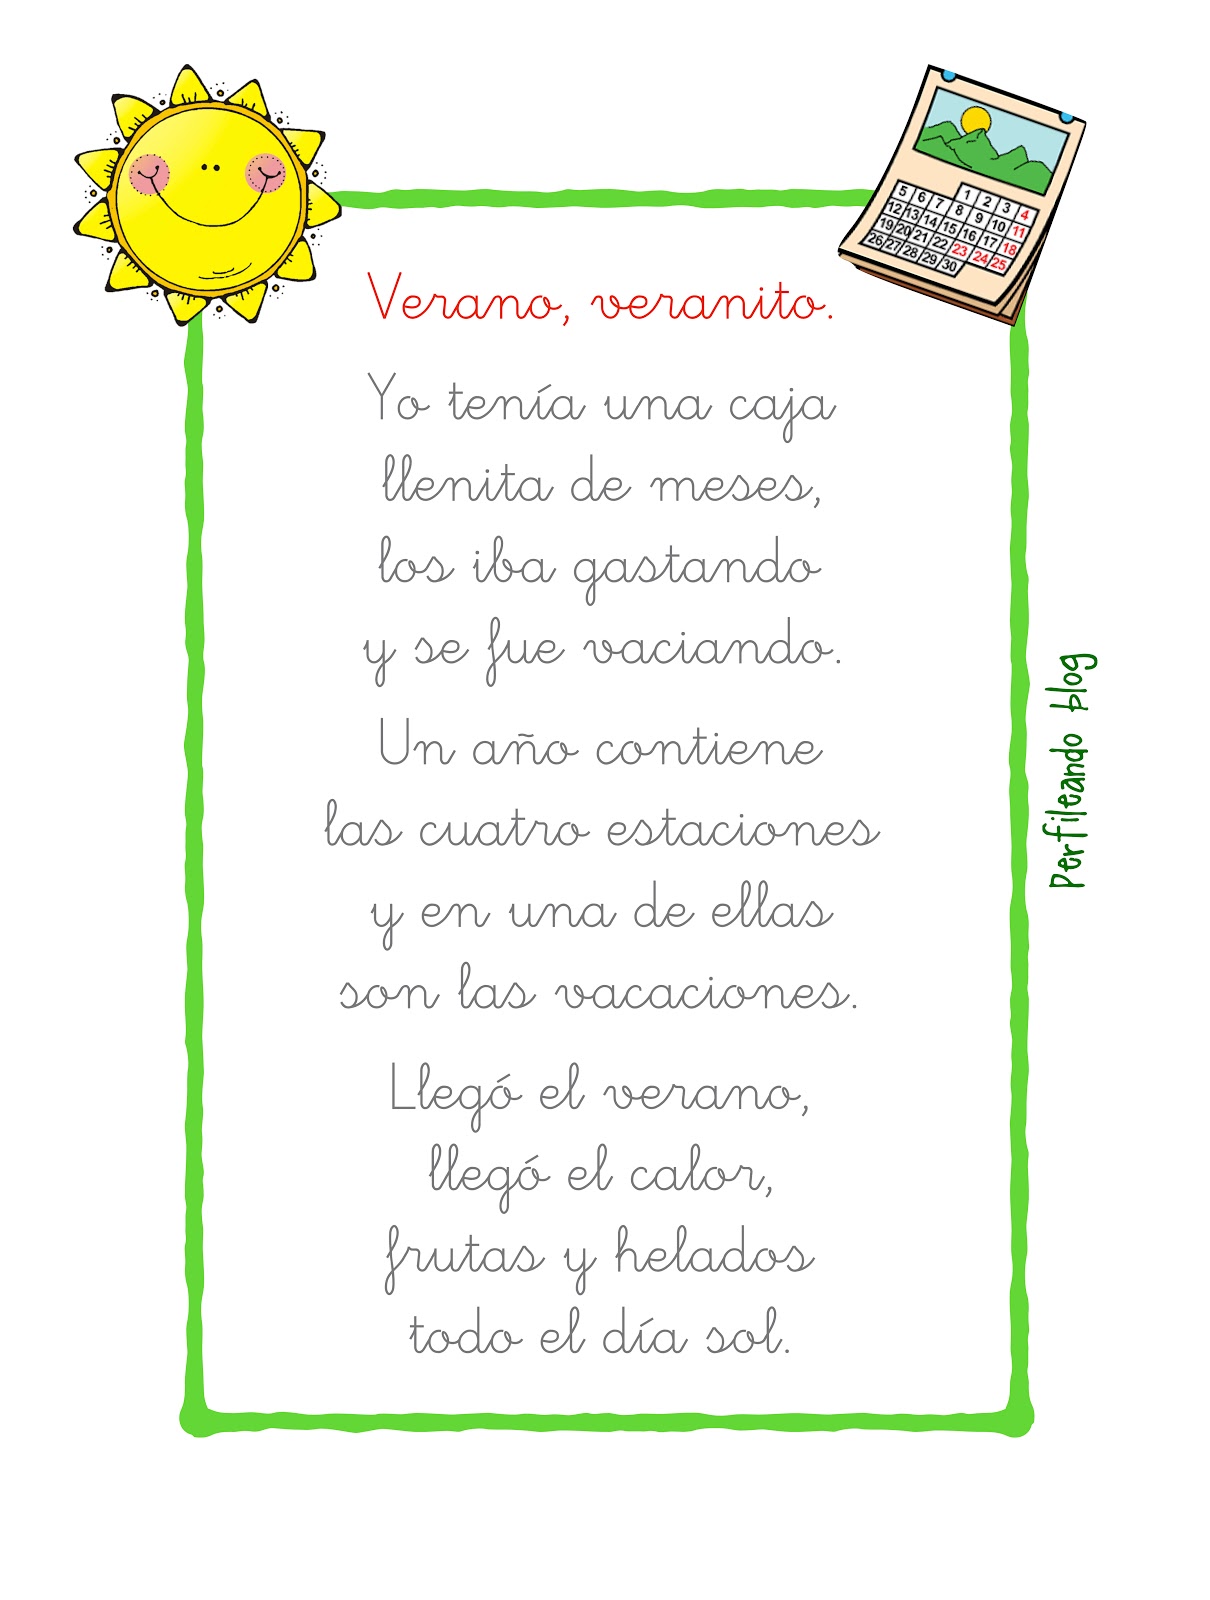 Verano, veranito.
Yo tenía una caja
llenita de meses,
los iba gastando
y se fue vaciando.
Un año contiene
las cuatro estaciones
y en una de ellas
son las vacaciones.
Llegó el verano,
llegó el calor,
frutas y helados
todo el día sol.
1 2 3 4
5 6 7 8 9 10 11
12 13 14 15 16 17 18
19 20 21 22 23 24 25
26 27 28 29 30
Perfileando blog